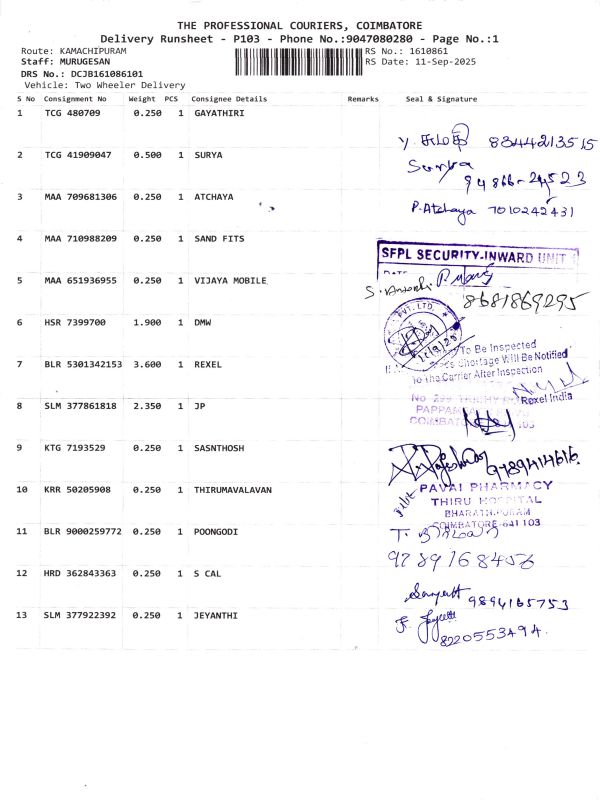 THE PROFESSIONAL COURIERS, COIMBATORE
Delivery Runsheet - P103 - Phone No.:9047080280 - Page No.:1
Route: KAMACHIPURAM RS No.: 1610861
Staff: MURUGESAN RS Date: 11-Sep-2025
DRS No.: DCJB161086101
Vehicle: Two Wheeler Delivery
S No Consignment No Weight PCS Consignee Details Remarks Seal & Signature
1 TCG 480709 0.250 1 GAYATHIRI
8344213515
2 TCG 41909047 0.500 1 SURYA
Surya
94866-24523
3 MAA 709681306 0.250 1 ATCHAYA
P.Atchaya 7010242431
4 MAA 710988209 0.250 1 SAND FITS
SFPL SECURITY-INWARD UNIT
DATE
5 MAA 651936955 0.250 1 VIJAYA MOBILE
8681869295
PVT. LTD.
6 HSR 7399700 1.900 1 DMW
To Be Inspected
Shortage Will Be Notified
To The Carrier After Inspection
7 BLR 5301342153 3.600 1 REXEL
Rexel India
8 SLM 377861818 2.350 1 JP
9 KTG 7193529 0.250 1 SASNTHOSH
9789414616
10 KRR 50205908 0.250 1 THIRUMAVALAVAN
PAVAI PHARMACY
THIRU HOSPITAL
BHARATHIPURAM
COIMBATORE-641 103
11 BLR 9000259772 0.250 1 POONGODI
9789168456
12 HRD 362843363 0.250 1 S CAL
9894165753
13 SLM 377922392 0.250 1 JEYANTHI
8220553494